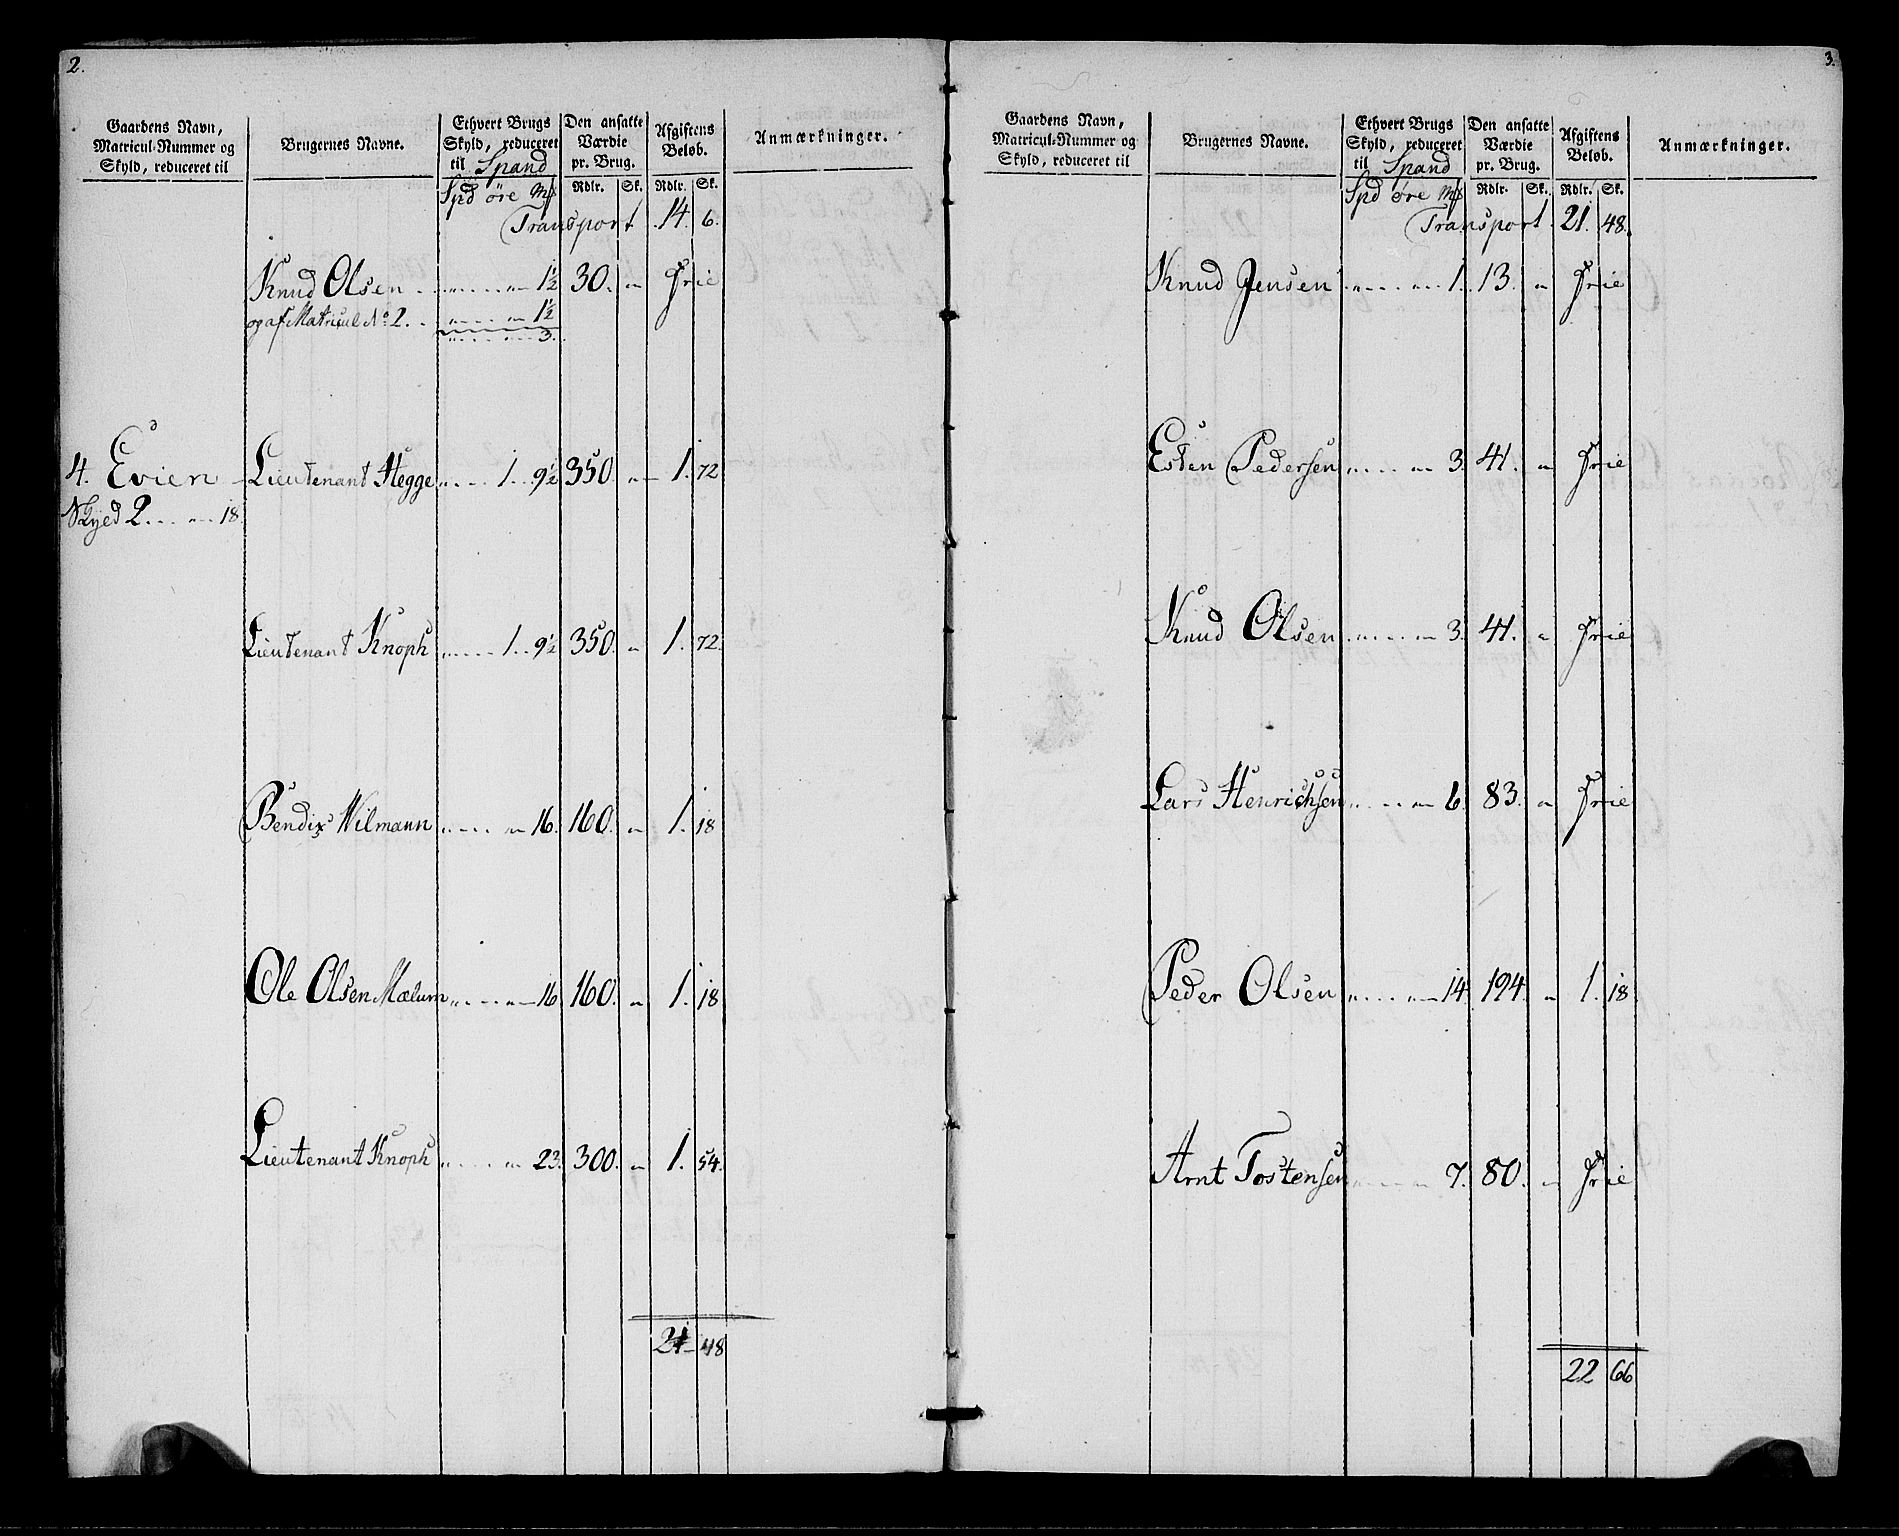 2.
Gaardens Navn, Matricul-Nummer og Skyld, reduceret til | Brugernes Navne. | Ethvert Brugs Skyld, reduceret til Spand | Den ansatte Værdie pr. Brug. | Afgiftens Beløb. | Anmærkninger.
Spd øre Mk | Rdlr. Sk. | Rdlr. Sk.
Transport 14. 6.
Knud Olsen 1½ 30. " Frie
og af Matricul No 2. 1½
3.
4. Evien Lieutenant Hegge 1. 9½ 350. " 1. 72.
Skyld 2. " 18.
Lieutenant Knoph 1. 9½ 350. " 1. 72.
Bendix Wilmann " 16. 160. " 1. 18
Ole Olsen Mælum " 16. 160. " 1. 18
Lieutenant Knoph " 23. 300. " 1. 54.
21 48
3.
Gaardens Navn, Matricul-Nummer og Skyld, reduceret til | Brugernes Navne. | Ethvert Brugs Skyld, reduceret til Spand | Den ansatte Værdie pr. Brug. | Afgiftens Beløb. | Anmærkninger.
Spd øre Mk | Rdlr. Sk. | Rdlr. Sk.
Transport 21. 48.
Knud Jensen " 1. 13. " Frie
Esten Pedersen " 3. 41. " Frie
Knud Olsen " 3. 41. " Frie
Lars Henrichsen " 6. 83. " Frie
Peder Olsen " 14. 194. " 1. 18
Arnt Tostensen " 7. 80. " Frie
22 66